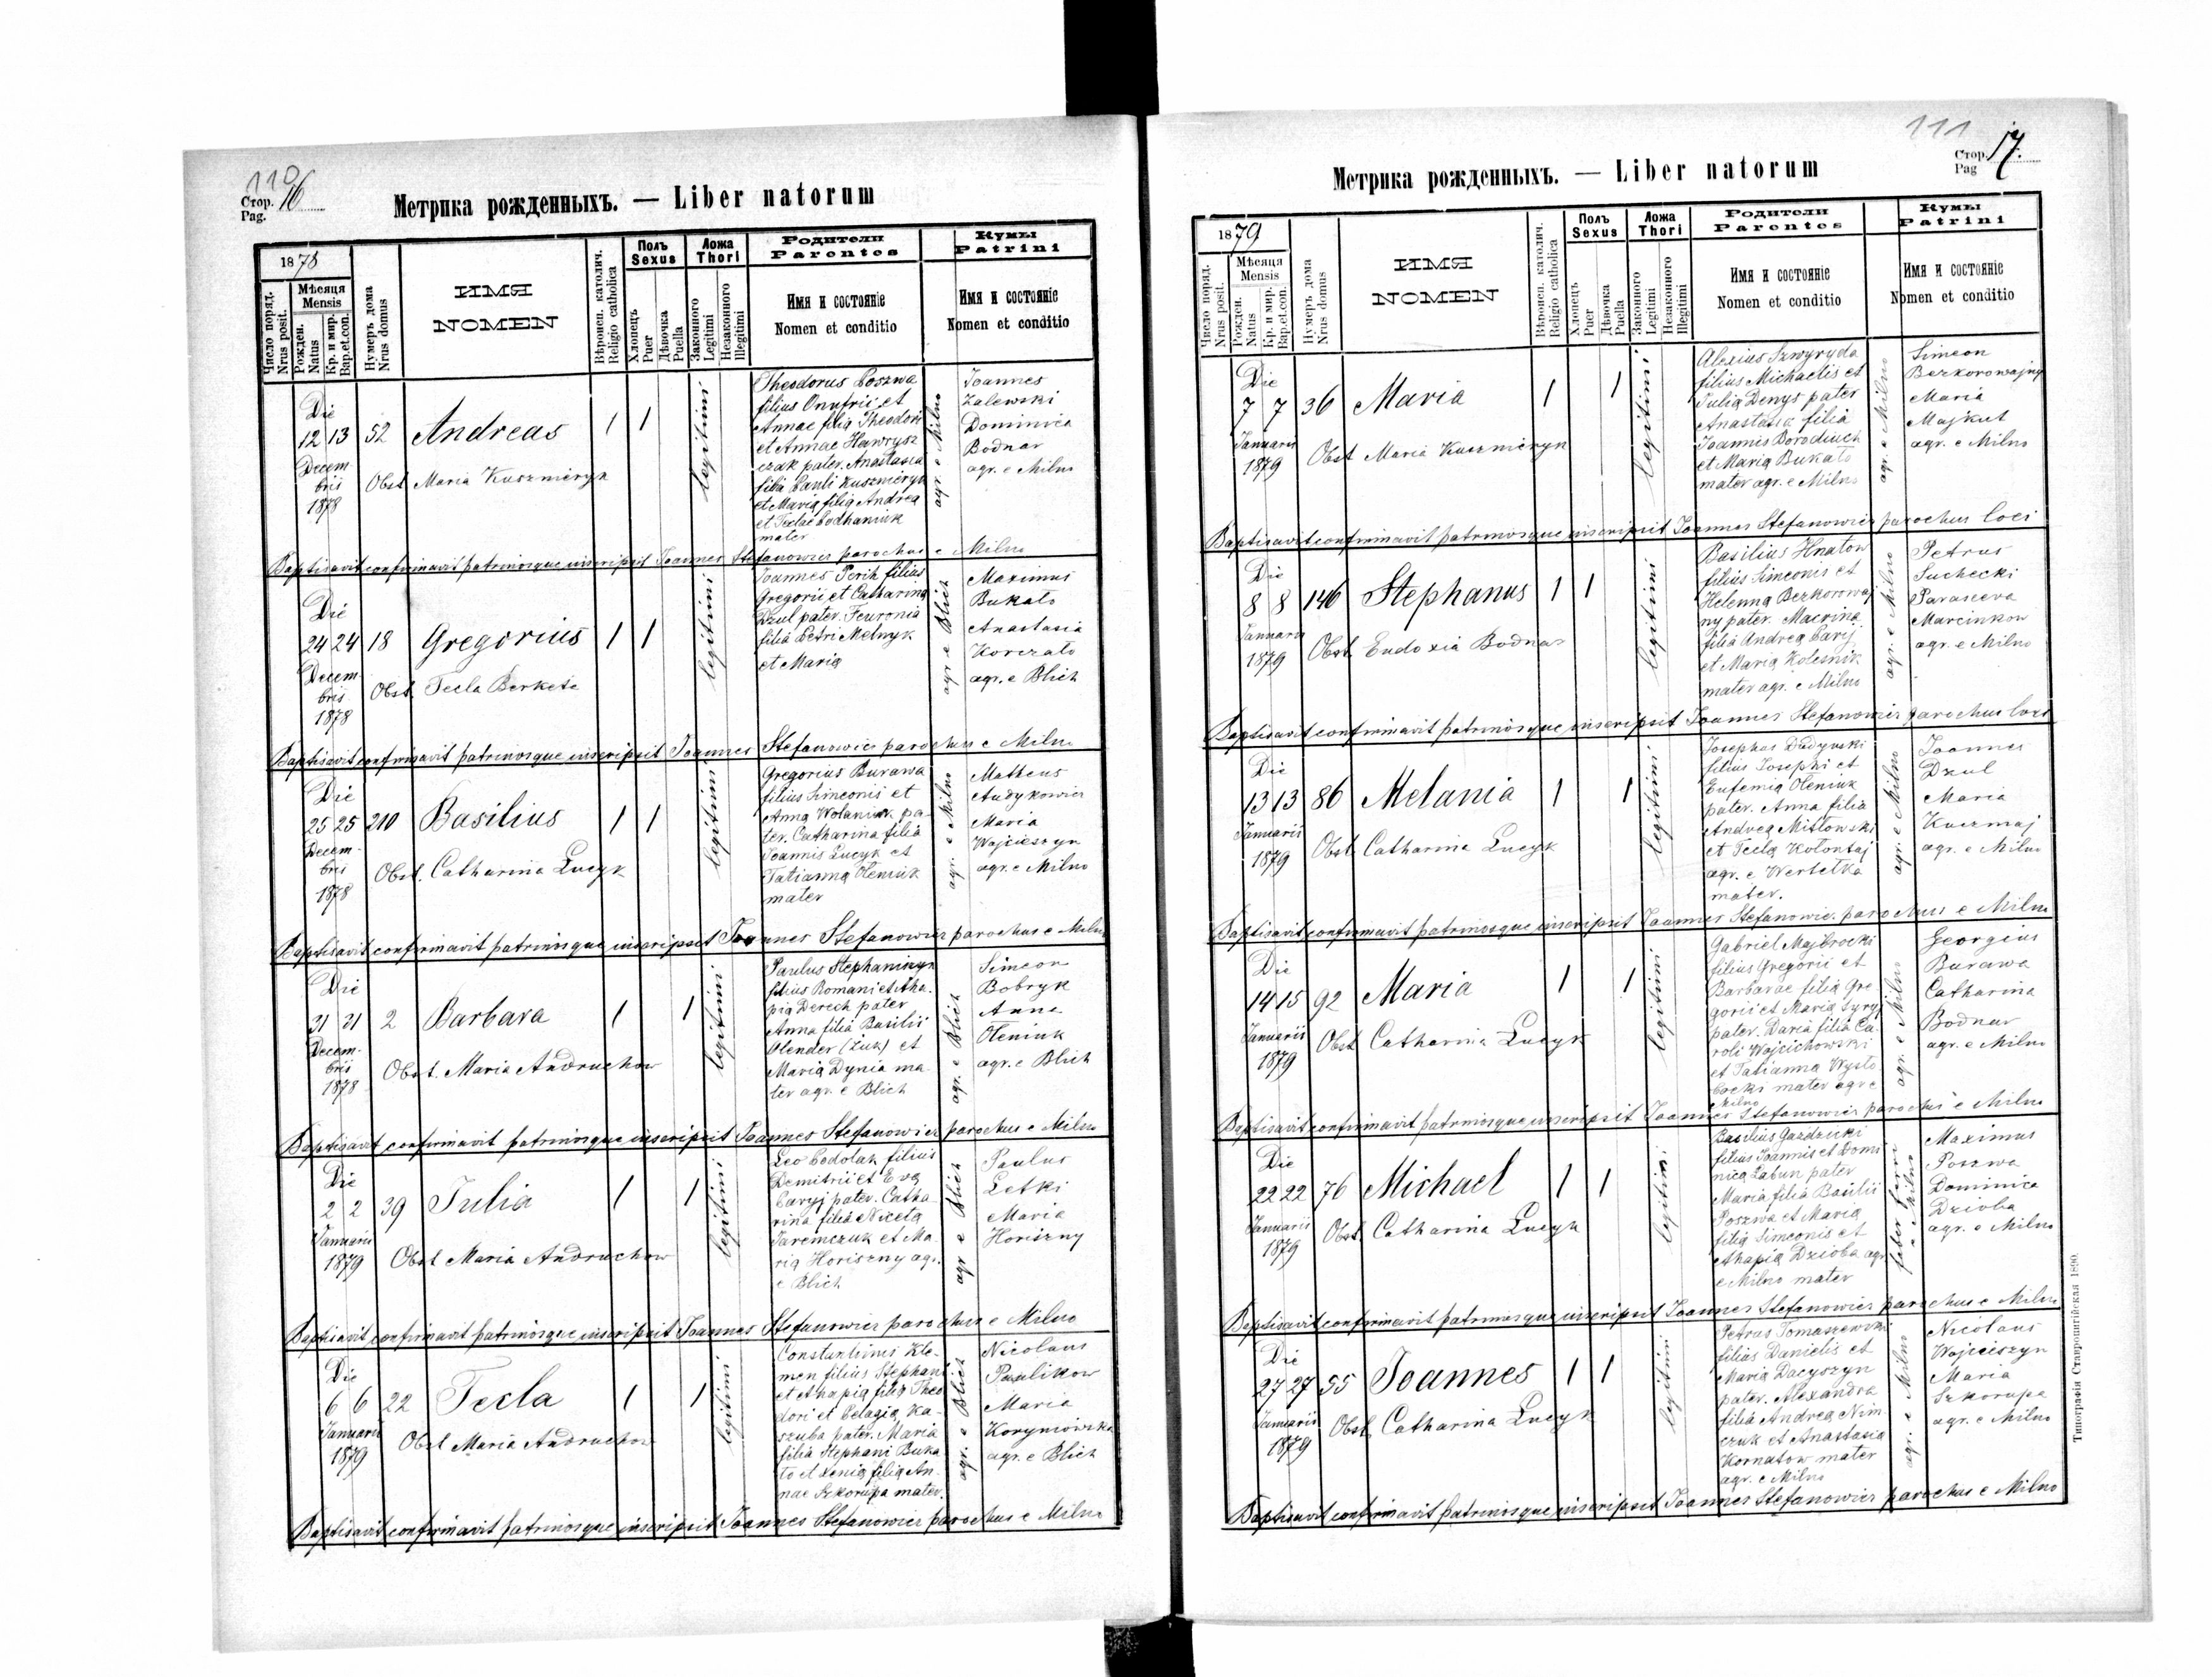 110
Стор. 16
Pag.
Метрика рожденныхъ. — Liber natorum
1878
Число поряд.
Nrus posit.
Мѣсяца
Mensis
Рожден.
Natus
Кр. и мир.
Bap.et.con.
Нумеръ дома
Nrus domus
ИМЯ
NOMEN
Вѣроисп. католич.
Religio catholica
Полъ
Sexus
Хлопецъ
Puer
Дѣвочка
Puella
Ложа
Thori
Законного
Legitimi
Незаконного
Illegitimi
Родители
Parentes
Имя и состояніе
Nomen et conditio
Кумы
Patrini
Имя и состояніе
Nomen et conditio
Die
12 13 52 Andreas 1 1 legitimi
Decem-
bris
1878
Obst Maria Kuszmeryk
Theodorus Poszwa
filius Onufrii et
Annae filia Theodori
et Annae Hawrysz
czak pater. Anastasia
filia Pauli Kuszmeryk
et Maria filia Andrea
et Teclae Podhaniuk
mater
agr. e Milno
Joannes
Zalewski
Dominica
Bodnar
agr. e Milno
Baptisavit confirmavit patrinosque inscripsit Joannes Stefanowicz parochus e Milno
Die
24 24 18 Gregorius 1 1 legitimi
Decem-
bris
1878
Obst. Tecla Berkete
Joannes Perih filius
Gregorii et Catharina
Dzul pater. Feuronia
filia Petri Melnyk
et Maria
agr e Blich
Maximus
Bukato
Anastasia
Korczato
agr. e Blich
Baptisavit confirmavit patrinosque inscripsit Joannes Stefanowicz parochus e Milno
Die
25 25 210 Basilius 1 1 legitimi
Decem-
bris
1878
Obst. Catharina Lucyk
Gregorius Burawa
filius Simeonis et
Anna Wolaniuk pa-
ter. Catharina filia
Joannis Lucyk et
Tatianna Oleniuk
mater
agr. e Milno
Matheus
Audykowicz
Maria
Wojcieszyn
agr. e Milno
Baptisavit confirmavit patrinosque inscripsit Joannes Stefanowicz parochus e Milno
Die
31 31 2 Barbara 1 1 legitimi
Decem-
bris
1878
Obst. Maria Andruchow
Paulus Stephaniszyn
filius Romani et Aha-
pia Derech pater
Anna filia Basilii
Olender (Żuk) et
Maria Dynia ma-
ter agr. e Blich
agr. e Blich
Simeon
Bobryk
Anna
Oleniuk
agr. e Blich
Baptisavit confirmavit patrinosque inscripsit Joannes Stefanowicz parochus e Milno
Die
2 2 39 Julia 1 1 legitimi
Januarii
1879
Obst Maria Andruchow
Leo Cedolak filius
Demitrii et Eva
Caryj pater. Catha-
rina filia Niceta
Jaremczuk et Ma-
ria Horiszny agr.
e Blich
agr e Blich
Paulus
Letki
Maria
Horiszny
Baptisavit confirmavit patrinosque inscripsit Joannes Stefanowicz parochus e Milno
Die
6 6 22 Tecla 1 1 legitimi
Januarii
1879
Obst Maria Andruchow
Constantinus Kle-
men filius Stephani
et Ahapia filia Theo
dori et Pelagia Ka-
szuba pater. Maria
filia Stephani Buka-
to et Xenia filia An-
nae Szkorupa mater.
agr. e Blich
Nicolaus
Paulikow
Maria
Korymowska
agr. e Blich
Baptisavit confirmavit patrinosque inscripsit Joannes Stefanowicz parochus e Milno
111
Стор. 17.
Pag
Метрика рожденныхъ. — Liber natorum
1879
Число поряд.
Nrus posit.
Мѣсяца
Mensis
Рожден.
Natus
Кр. и мир.
Bap.et.con.
Нумеръ дома
Nrus domus
ИМЯ
NOMEN
Вѣроисп. католич.
Religio catholica
Полъ
Sexus
Хлопецъ
Puer
Дѣвочка
Puella
Ложа
Thori
Законного
Legitimi
Незаконного
Illegitimi
Родители
Parentes
Имя и состояніе
Nomen et conditio
Кумы
Patrini
Имя и состояніе
Nomen et conditio
Die
7 7 36 Maria 1 1 legitimi
Januarii
1879
Obst Maria Kuszmeryk
Alexius Szwyryda
filius Michaelis et
Julia Denys pater
Anastasia filia
Joannis Dorodiuch
et Maria Bukato
mater agr. e Milno
agr. e Milno
Simeon
Bezkorowajny
Maria
Majkut
agr. e Milno
Baptisavit confirmavit patrinosque inscripsit Joannes Stefanowicz parochus loci
Die
8 8 146 Stephanus 1 1 legitimi
Januarii
1879
Obst. Eudoxia Bodnar
Basilius Hnatow
filius Simeonis et
Helenna Bezkorowaj
ny pater. Macrina
filia Andrea Caryj
et Maria Kolesnik
mater agr. e Milno
agr. e Milno
Petrus
Suchecki
Parasceva
Marcinkow
agr. e Milno
Baptisavit confirmavit patrinosque inscripsit Joannes Stefanowicz parochus loci
Die
13 13 86 Melania 1 1 legitimi
Januarii
1879
Obst. Catharina Lucyk
Josephus Dudynski
filius Josephi et
Eufemia Oleniuk
pater. Anna filia
Andrea Mistowski
et Tecla Kolontaj
agr. e Wertetka
mater.
agr. e Milno
Joannes
Dzul
Maria
Kuczmaj
agr. e Milno
Baptisavit confirmavit patrinosque inscripsit Joannes Stefanowicz parochus e Milno
Die
14 15 92 Maria 1 1 legitimi
Januarii
1879
Obst Catharina Lucyk
Gabriel Majbrocki
filius Gregorii et
Barbarae filia Gre
gorii et Maria Syryj
pater. Daria filia Ca-
roli Wojcichowski
et Tatianna Wysto-
cocki mater agr e
Milno
agr. e Milno
Georgius
Burawa
Catharina
Bodnar
agr. e Milno
Baptisavit confirmavit patrinosque inscripsit Joannes Stefanowicz parochus e Milno
Die
22 22 76 Michael 1 1 legitimi
Januarii
1879
Obst. Catharina Lucyk
Basilius Gazdzicki
filius Joannis et Domi
nica Labun pater
Maria filia Basilii
Poszwa et Maria
filia Simeonis et
Ahapia Dzioba agr.
e Milno mater
faber ferri
e Milno
Maximus
Poszwa
Dominica
Dzioba
agr. e Milno
Baptisavit confirmavit patrinosque inscripsit Joannes Stefanowicz parochus e Milno
Die
27 27 55 Joannes 1 1 legitimi
Januarii
1879
Obst. Catharina Lucyk
Petrus Tomaszewski
filius Danielis et
Maria Dacyszyn
pater. Alexandra
filia Andrea Nim-
czuk et Anastasia
Kornatow mater
agr. e Milno
agr. e Milno
Nicolaus
Wojcieszyn
Maria
Szkorupa
agr. e Milno
Baptisavit confirmavit patrinosque inscripsit Joannes Stefanowicz parochus e Milno
Типографія Ставропигійская 1890.